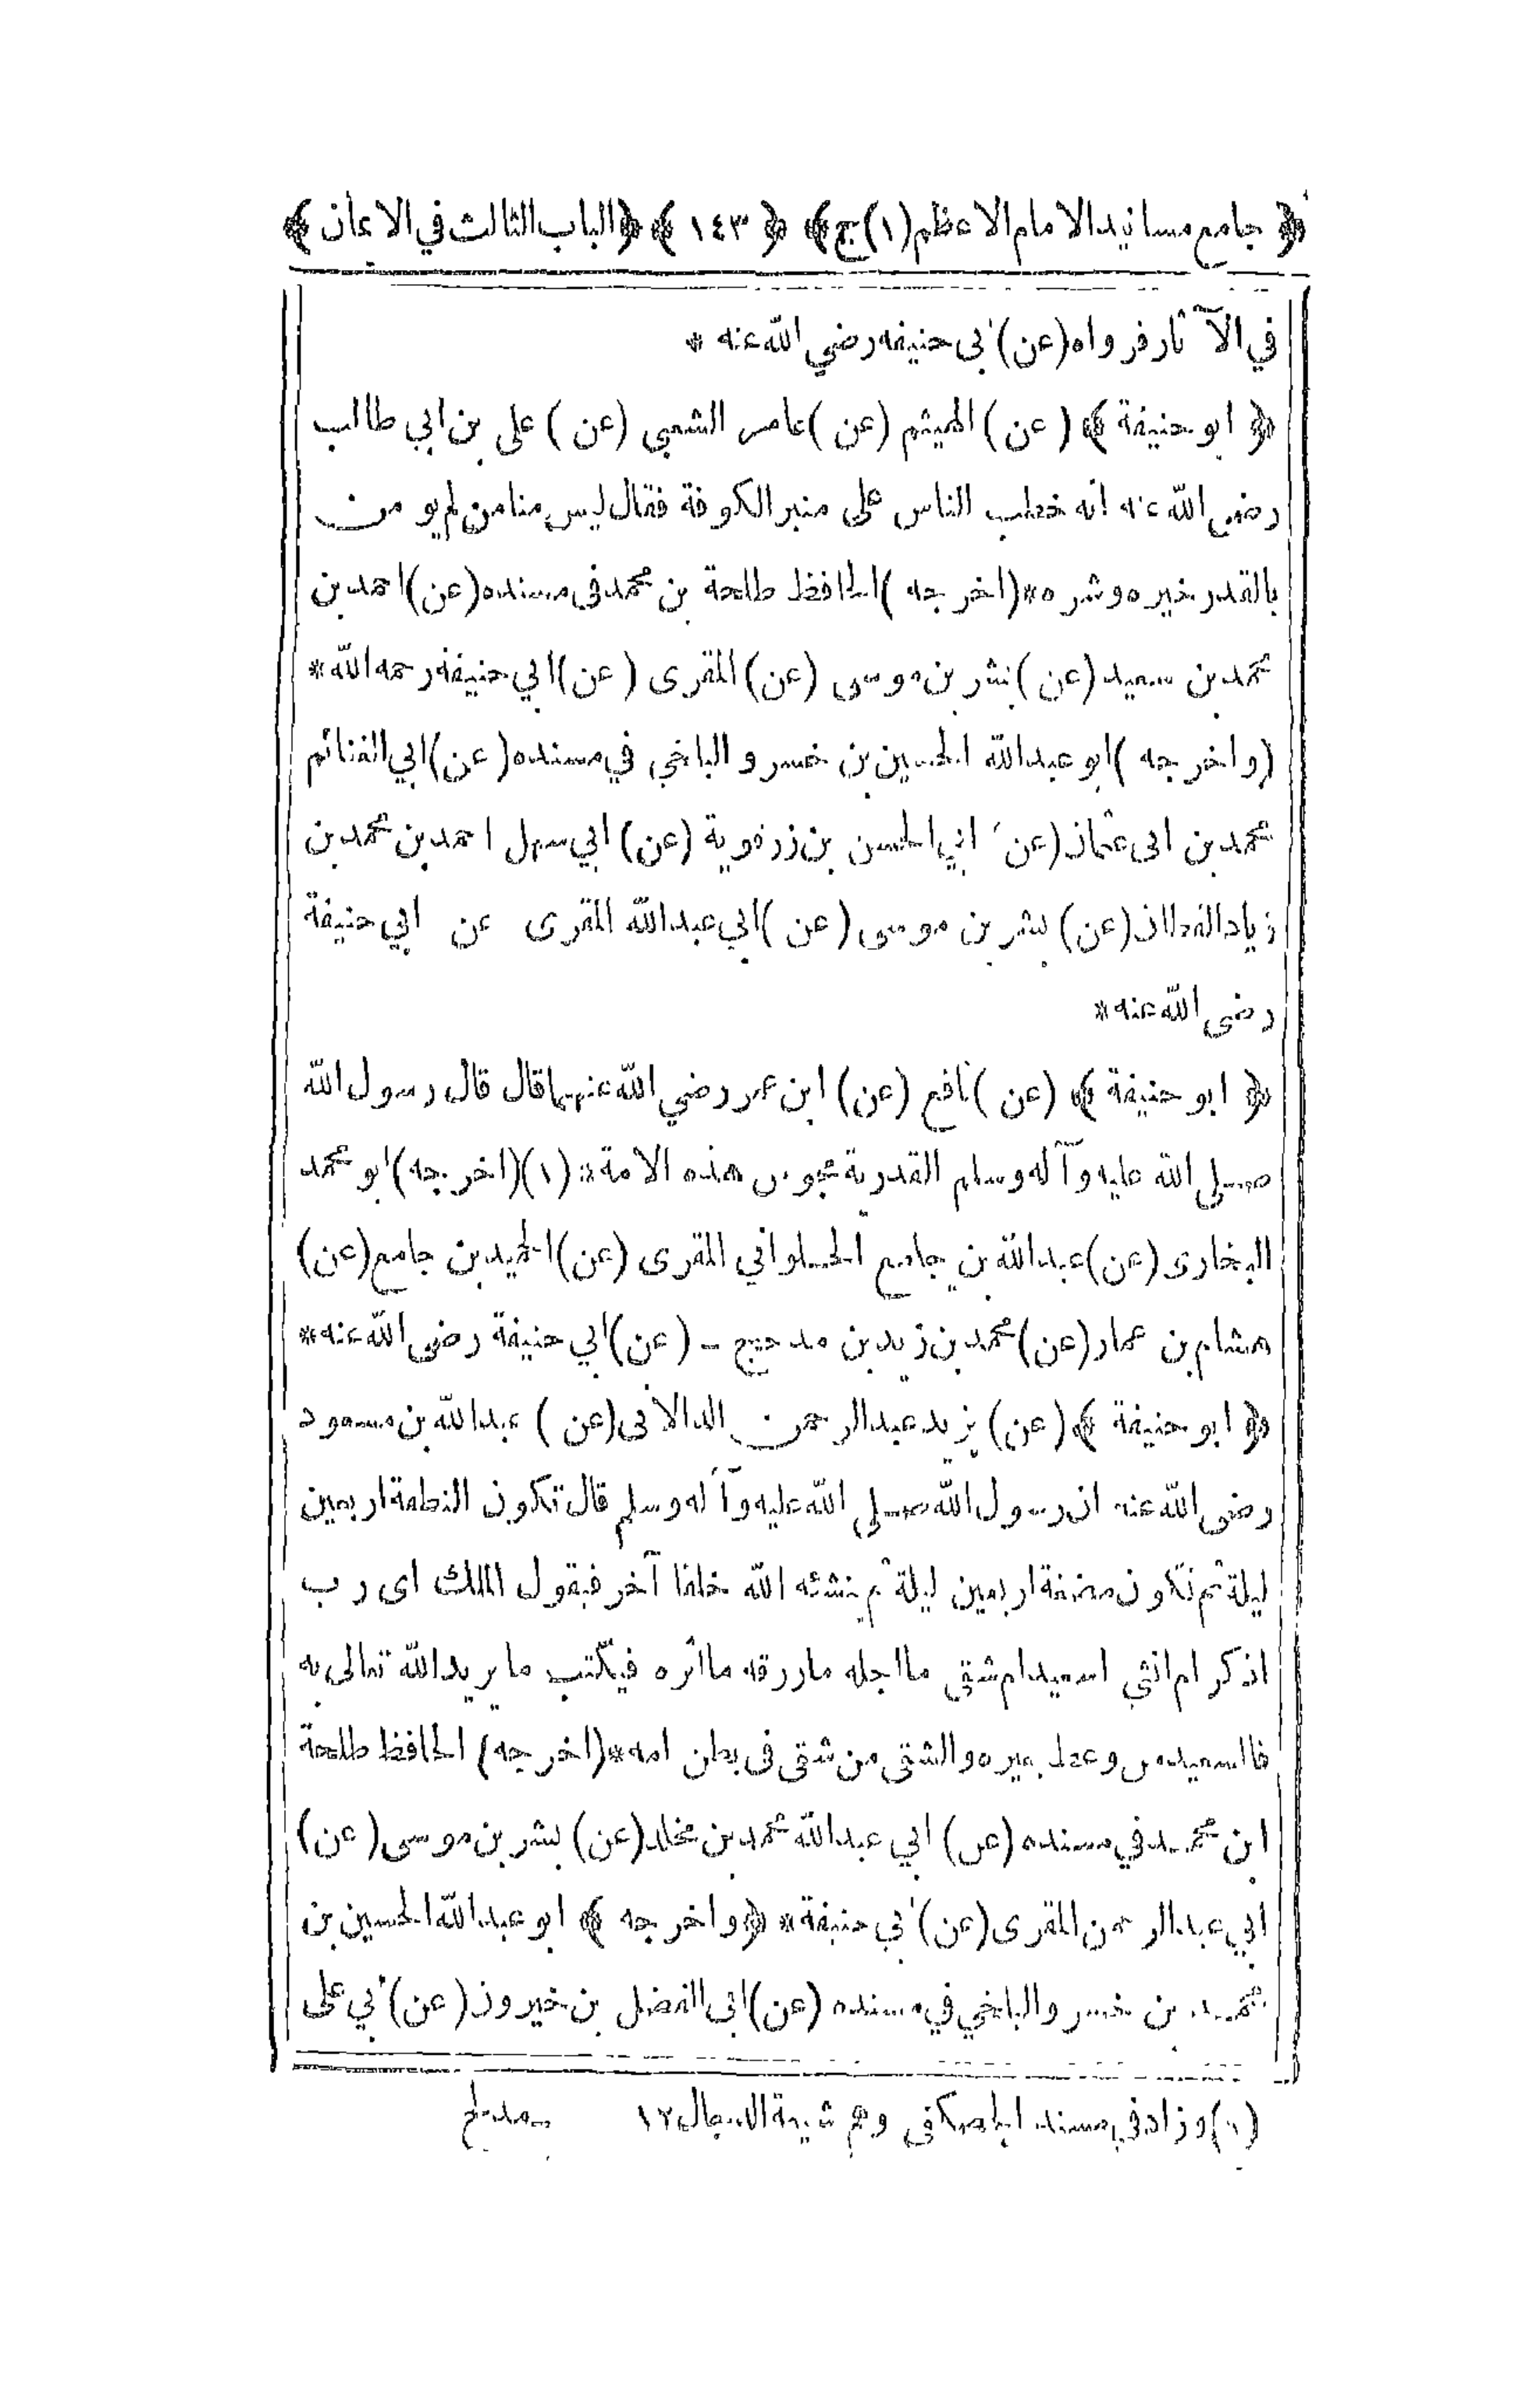 ﴿ جامع مسانيد الامام الاعظم (١) ج ﴾ ﴿ ١٤٣ ﴾ ﴿ الباب الثالث في الايمان ﴾
في الآثار فرواه (عن) ابي حنيفه رضي الله عنه *
﴿ ابو حنيفة ﴾ (عن) الهيثم (عن) عامر الشعبي (عن) علي بن ابي طالب
رضي الله عنه انه خطب الناس على منبر الكوفة فقال ليس منا من لم يؤمن
بالقدر خيره وشره * (اخرجه) الحافظ طلحة بن محمد في مسنده (عن) احمد بن
محمد بن سعيد (عن) بشر بن موسى (عن) المقرى (عن) ابي حنيفة رحمه الله *
(واخرجه) ابو عبد الله الحسين بن خسرو البلخي في مسنده (عن) ابي الغنائم
محمد بن ابي عثمان (عن) ابي الحسن بن زرقوية (عن) ابي سهل احمد بن محمد بن
زياد القطان (عن) بشر بن موسى (عن) ابي عبد الله المقرى عن ابي حنيفة
رضي الله عنه *
﴿ ابو حنيفة ﴾ (عن) نافع (عن) ابن عمر رضي الله عنهما قال قال رسول الله
صلى الله عليه وآله وسلم القدرية مجوس هذه الامة * (١) (اخرجه) ابو محمد
البخارى (عن) عبد الله بن جامع الحلواني المقرى (عن) الحميد بن جامع (عن)
هشام بن عمار (عن) محمد بن زيد بن مدحج - (عن) ابي حنيفة رضي الله عنه *
﴿ ابو حنيفة ﴾ (عن) يزيد عبد الرحمن الدالاني (عن) عبد الله بن مسعود
رضي الله عنه ان رسول الله صلى الله عليه وآله وسلم قال تكون النطفة اربعين
ليلة ثم تكون مضغة اربعين ليلة ثم ينشئه الله خلقا آخر فيقول الملك اى رب
اذكر ام انثى اسعيد ام شقي ما اجله ما رزقه ما اثره فيكتب ما يريد الله تعالى به
فالسعيد من وعظ بغيره والشقي من شقي في بطن امه * (اخرجه) الحافظ طلحة
ابن محمد في مسنده (عن) ابي عبد الله محمد بن مخلد (عن) بشر بن موسى (عن)
ابي عبد الرحمن المقرى (عن) ابي حنيفة * ﴿ واخرجه ﴾ ابو عبد الله الحسين بن
محمد بن خسرو البلخي في مسنده (عن) ابي الفضل بن خيرون (عن) ابي علي
(١) وزاد في مسند الحصكفي وهم شيعة الدجال ١٢